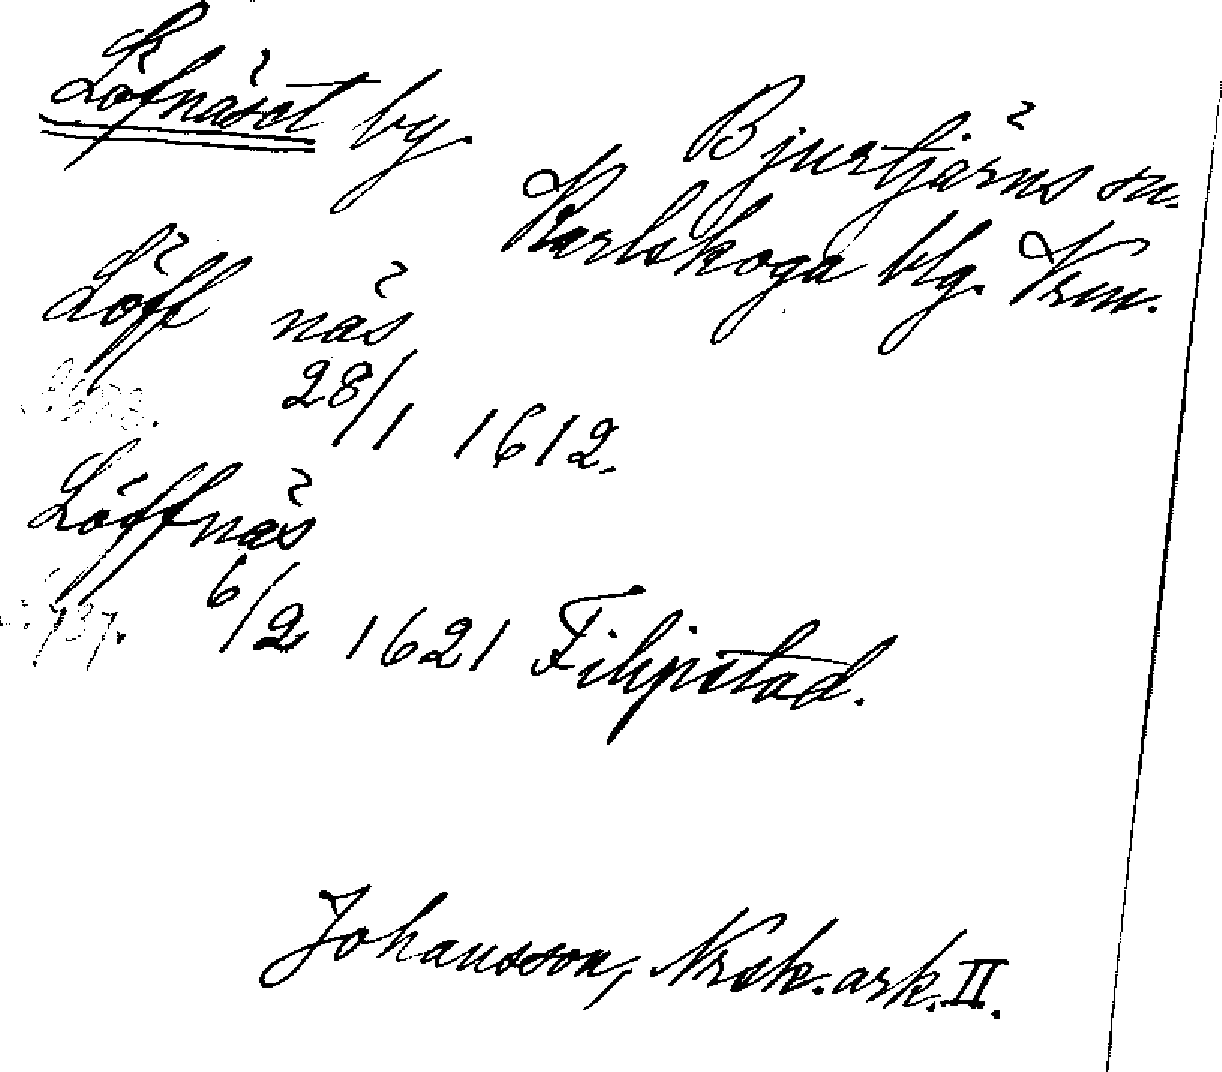 Löfnäset by.
Bjurtjärns sn.
Karlskoga blg. Vrm.
Löff näs
28/1 1612.
Löffnäs
6/2 1621 Filipstad.
Johansson, Nrsk. ark. II.